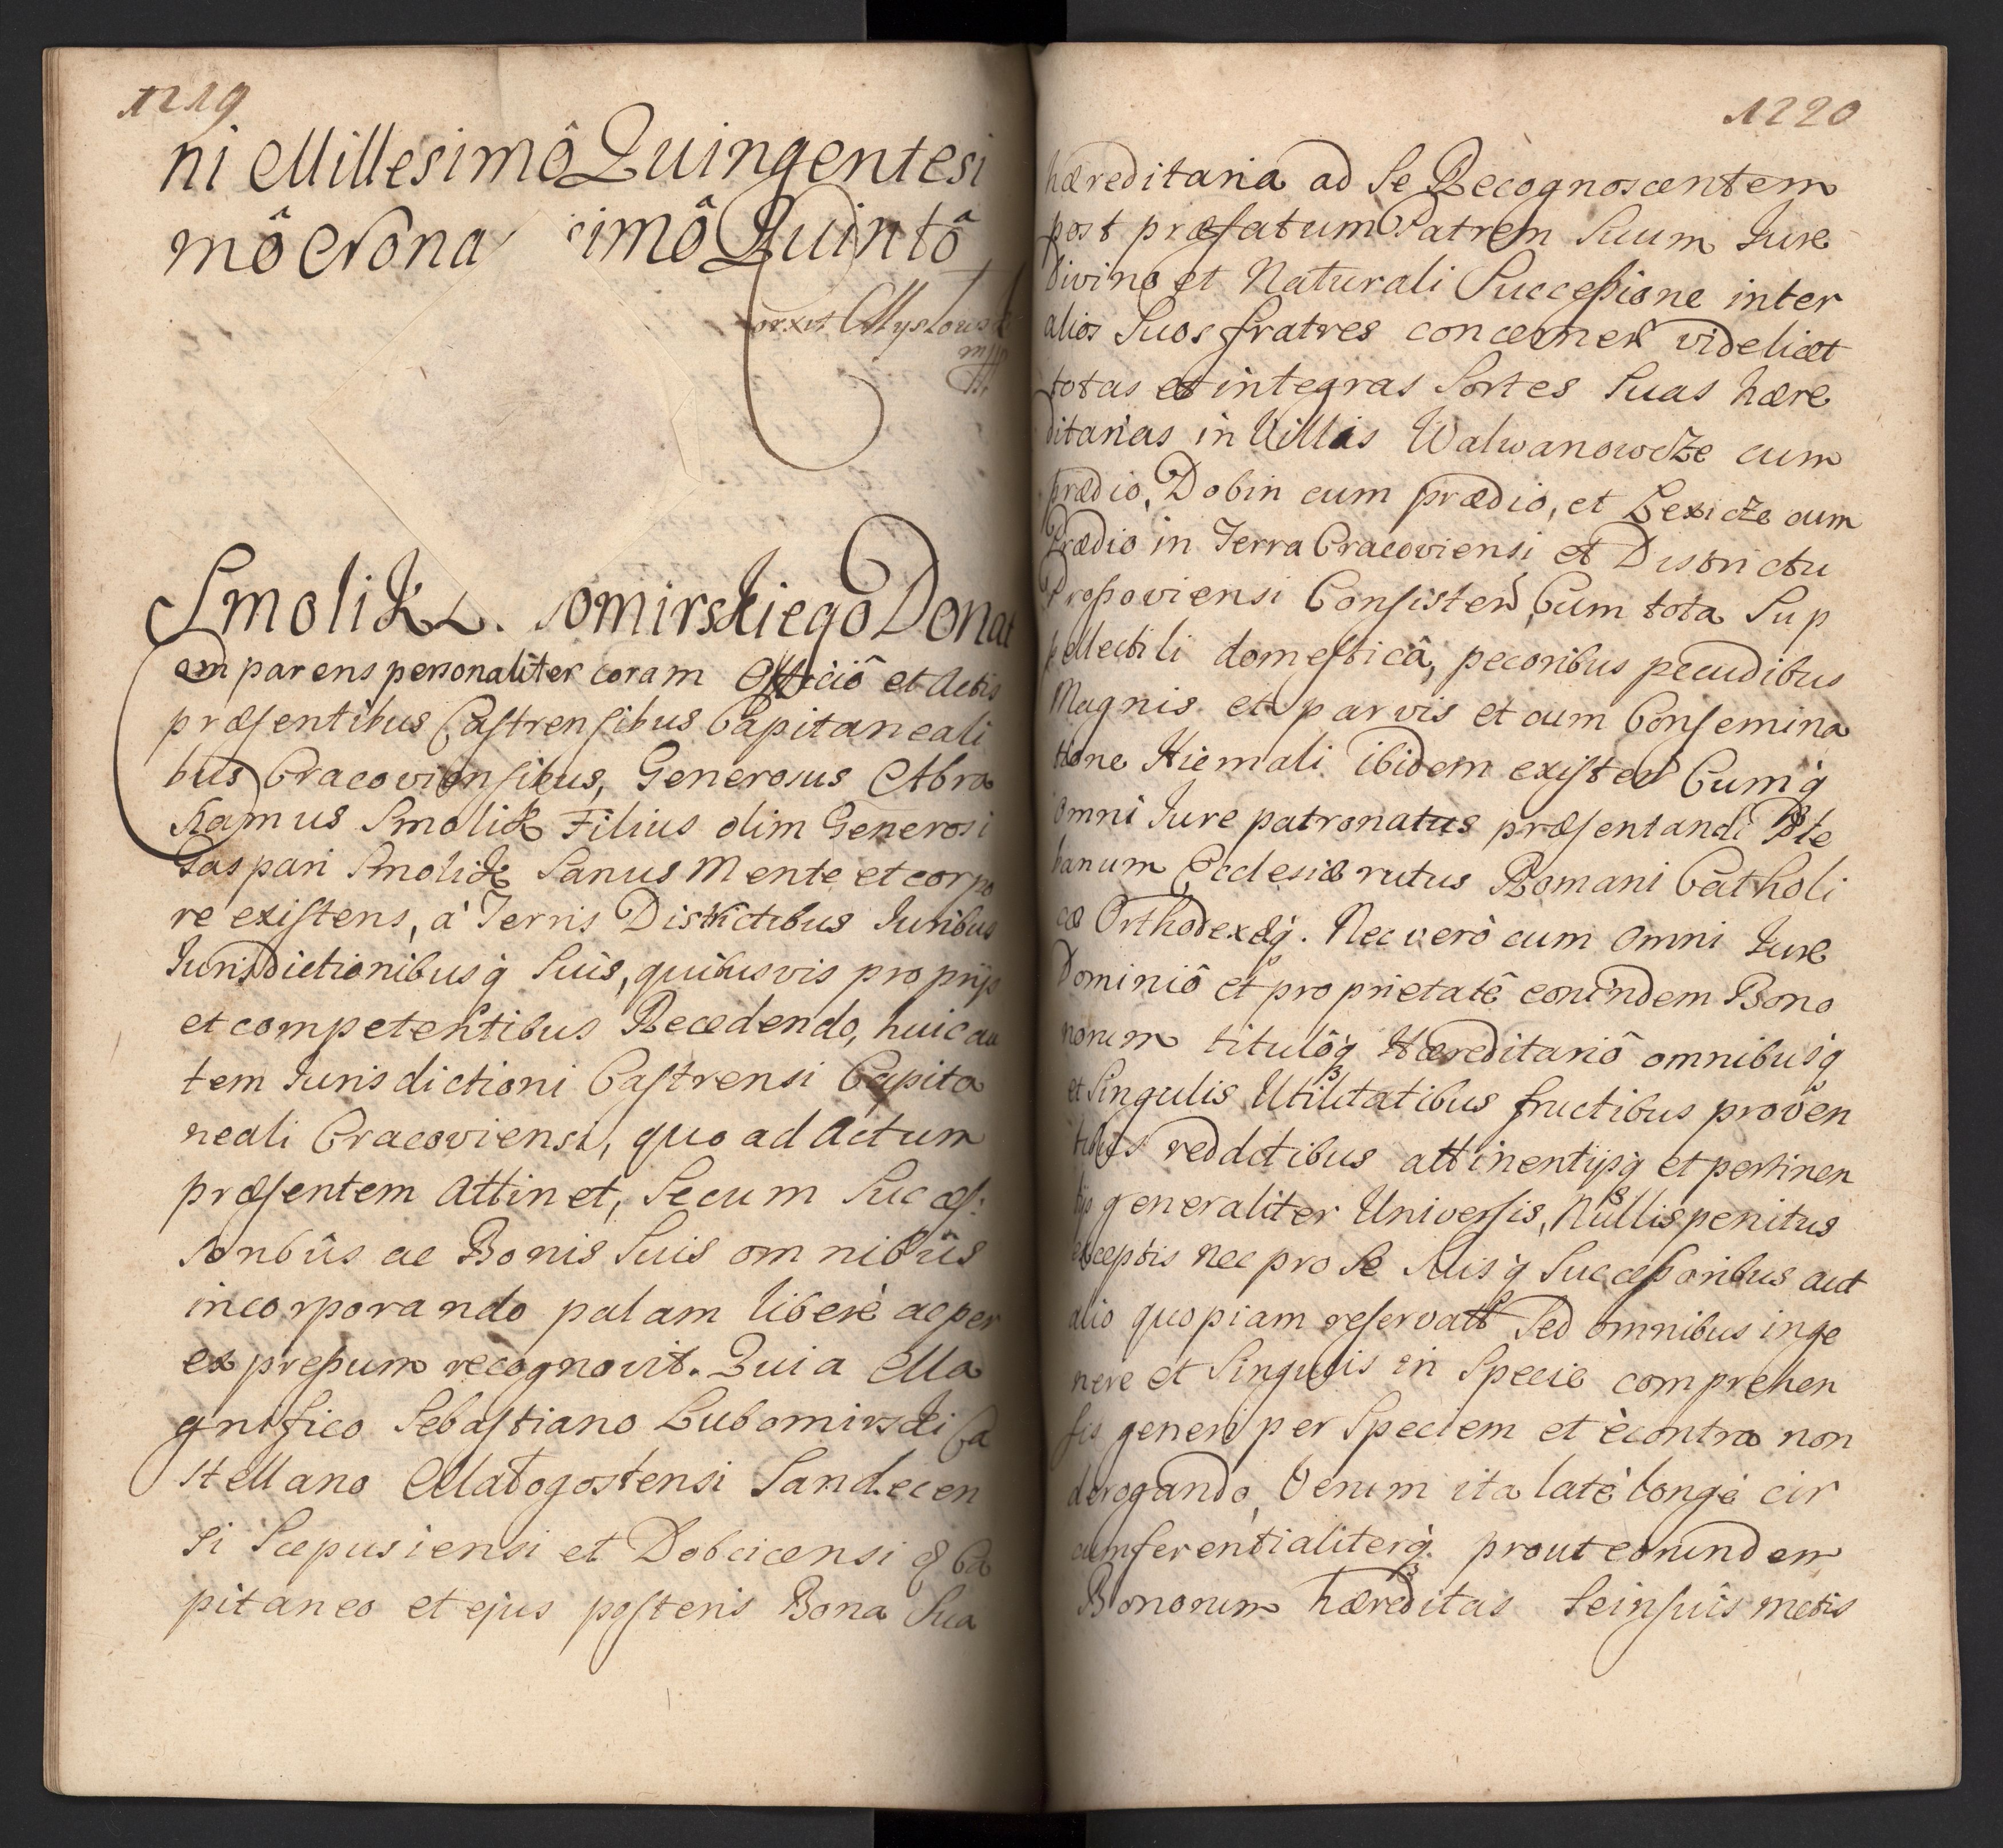 1219
ni Millesimô Quingentesi
mô Nona simô Quintô
correxit Mysłowski
Smolik L. omirskiego Donat
Comparens personaliter coram Officiô et Actis
præsentibus Castrensibus Capitaneali
bus Cracoviensibus, Generosus Abra
hamus Smolik Filius olim Generosi
Gaspari Smolik Sanus Mente et corpo
re existens, à Terris Districtibus Juribus
Jurisdictionibusq̀ Suis, quibusvis proprijs
et competentibus Recedendo, huic au
tem Jurisdictioni Castrensi Capita
neali Cracoviensi, quo ad Actum
præsentem Attinet, Secum Succes:
soribûs ac Bonis Suis omnibûs
incorporando palam liberè ac per
expressum recognovit. Quia Ma
gnifico Sebastiano Lubomirski Ca
stellano Małogostensi Sandecen
si Scepusiensi et Dobcicensi q̃ Ca
pitaneo et ejus posteris Bona Sua
1220
hæreditaria ad Se Recognoscentem
post præfatum Patrem Suum Jure
Divino et Naturali Successione inter
alios Suos fratres concernen̄ videlicet
totas et integras Sortes Suas hære
ditarias in Villis Walwanowcze cum
prædio, Dobin cum prædio, et Lexicze cum
Prædio in Terra Cracoviensi et Districtu
Proszoviensi Consisten̄ Cum tota Sup
pellectili domesticâ, pecoribus pecudibus
Magnis et parvis et cum Consemina
tione Hiemali ibidem existen̄ Cumq̀
omni Jure patronatus præsentandi Ple
banum Ecclesiæ rutus Romani Catholi
cæ Orthodexæq̀. Nec verò cum omni Jure
Dominiô et proprietatê eorundem Bono
norum titulôq̀ Hæreditariô omnibusq̀
et Singulis Utilitatibus fructibus proven
tibus redditibus attinentijsq̀ et pertinen
tijs generaliter Universis, Nullis penitus
exceptis nec pro Se Suisq̀ Successoribus aut
alio quopiam reservatis Sed omnibus inge
nere et Singulis in Specie comprehen
sis generi per Speciem et è contra non
derogando, Verum ita latè longè cir
cumferentialiterq̀. prout eorundem
Bonorum hæreditas Se in suis metis